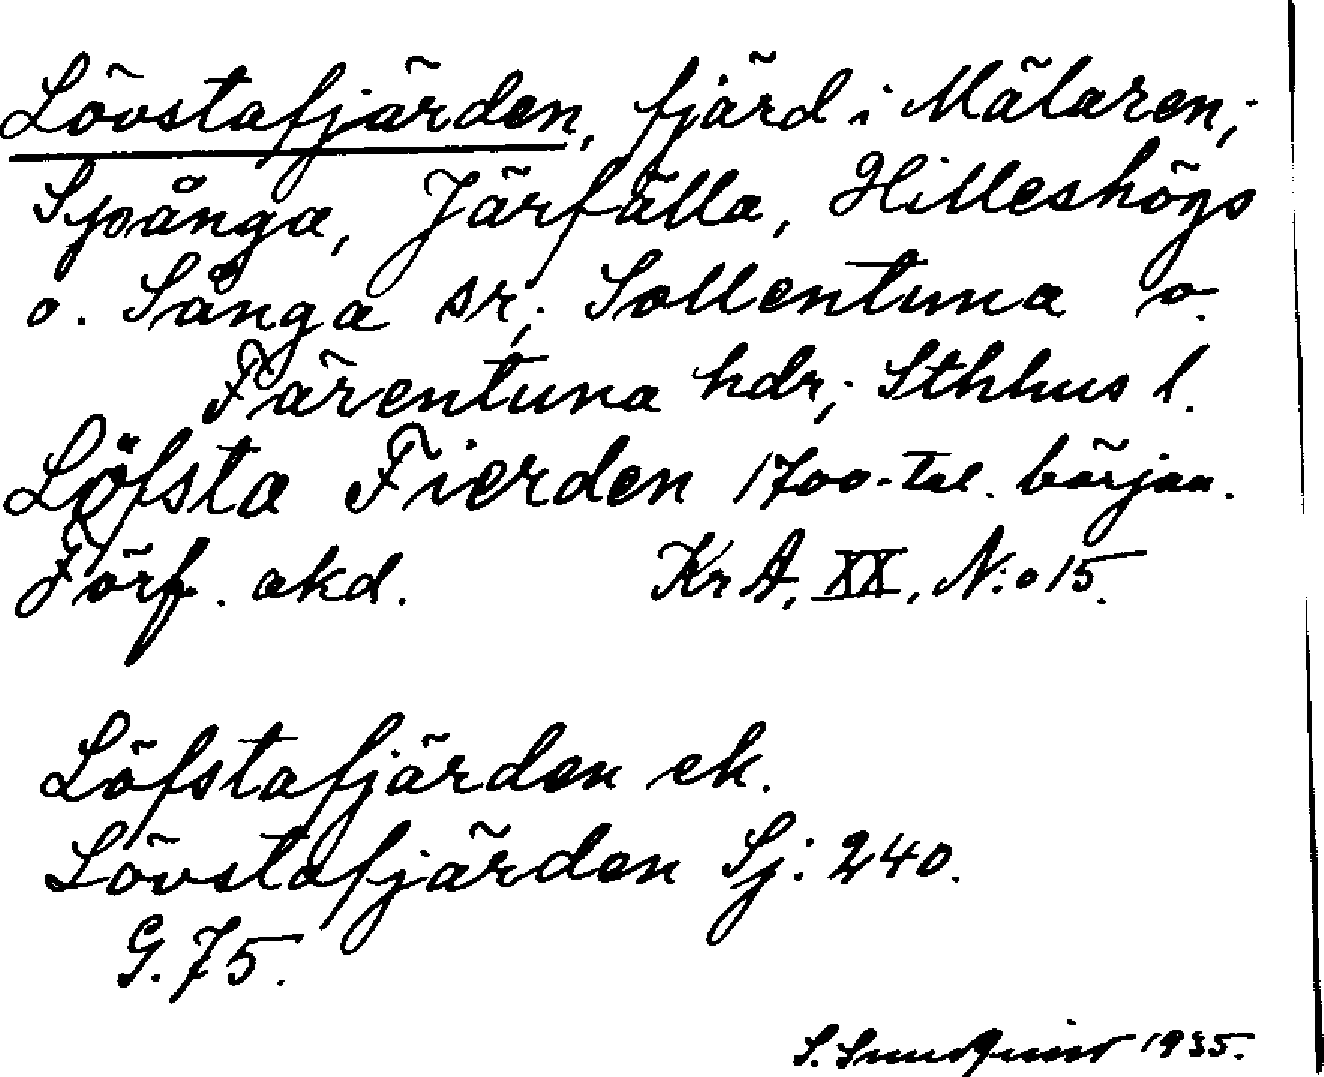 Lövstafjärden, fjärd i Mälaren;
Spånga, Järfälla, Hilleshögs
o. Sånga sr; Sollentuna o.
Färentuna hdr; Sthlms l.
Löfsta Fierden 1700-tal. början.
Förf. okd. KrA, XX, N:o 15.
Löfstafjärden ek.
Lövstafjärden Sj: 240.
G. 75.
S. Sundquist 1935.